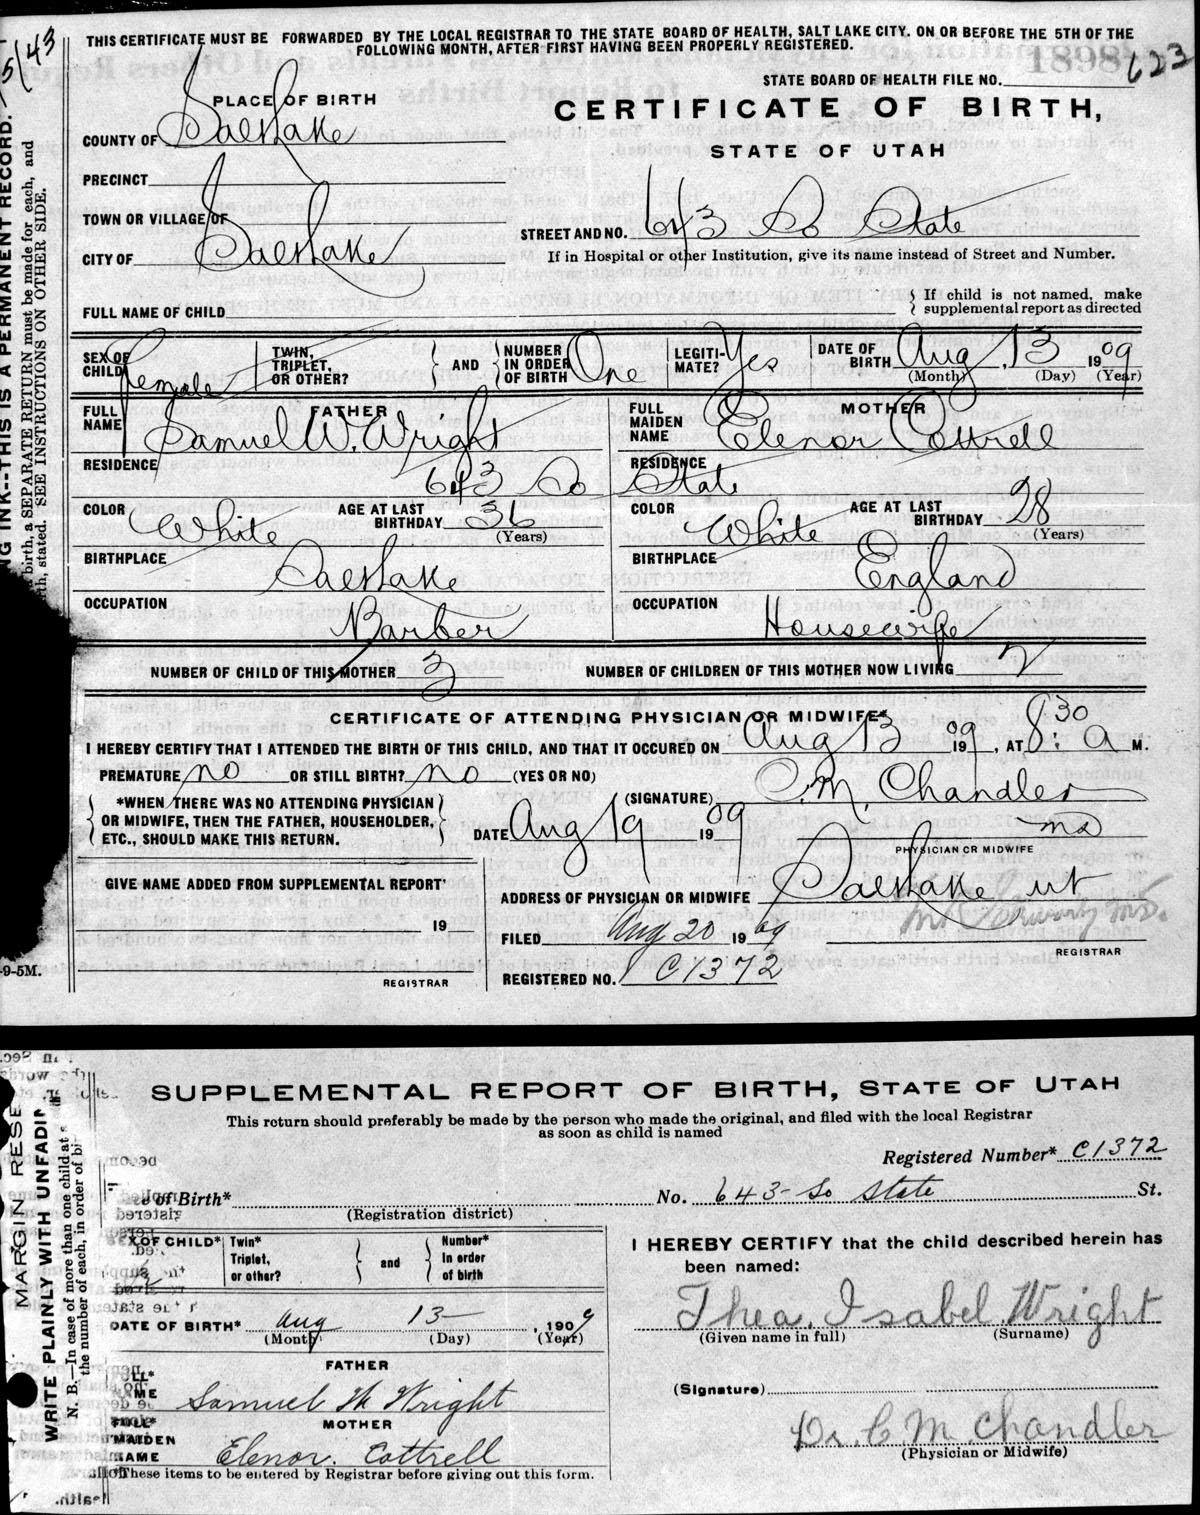 5/43
THIS CERTIFICATE MUST BE FORWARDED BY THE LOCAL REGISTRAR TO THE STATE BOARD OF HEALTH, SALT LAKE CITY. ON OR BEFORE THE 5TH OF THE
FOLLOWING MONTH, AFTER FIRST HAVING BEEN PROPERLY REGISTERED.
STATE BOARD OF HEALTH FILE NO. 623
PLACE OF BIRTH
CERTIFICATE OF BIRTH,
STATE OF UTAH
COUNTY OF Salt Lake
PRECINCT
TOWN OR VILLAGE OF
CITY OF Salt Lake
STREET AND NO. 643 So State
If in Hospital or other Institution, give its name instead of Street and Number.
FULL NAME OF CHILD
If child is not named, make
supplemental report as directed
SEX OF CHILD Female
TWIN, TRIPLET, OR OTHER?
AND
NUMBER IN ORDER OF BIRTH One
LEGITIMATE? Yes
DATE OF BIRTH Aug 13 1909
(Month) (Day) (Year)
FATHER
FULL NAME Samuel W. Wright
MOTHER
FULL MAIDEN NAME Elenor Cottrell
RESIDENCE 643 So State
RESIDENCE
COLOR White AGE AT LAST BIRTHDAY 36 (Years)
COLOR White AGE AT LAST BIRTHDAY 28 (Years)
BIRTHPLACE Salt Lake
BIRTHPLACE England
OCCUPATION Barber
OCCUPATION Housewife
NUMBER OF CHILD OF THIS MOTHER 3 NUMBER OF CHILDREN OF THIS MOTHER NOW LIVING 2
CERTIFICATE OF ATTENDING PHYSICIAN OR MIDWIFE*
I HEREBY CERTIFY THAT I ATTENDED THE BIRTH OF THIS CHILD, AND THAT IT OCCURED ON Aug 13 1909, AT 8:30 a M.
PREMATURE no OR STILL BIRTH? no (YES OR NO)
*WHEN THERE WAS NO ATTENDING PHYSICIAN
OR MIDWIFE, THEN THE FATHER, HOUSEHOLDER,
ETC., SHOULD MAKE THIS RETURN.
(SIGNATURE) C. M. Chandler
DATE Aug 19 1909
MD
PHYSICIAN OR MIDWIFE
GIVE NAME ADDED FROM SUPPLEMENTAL REPORT
19
REGISTRAR
ADDRESS OF PHYSICIAN OR MIDWIFE Salt Lake ut
FILED Aug 20 1909
REGISTRAR
REGISTERED NO. C1372
-9-5M.
NG INK--THIS IS A PERMANENT RECORD.
birth, a SEPARATE RETURN must be made for each, and
th, stated. SEE INSTRUCTIONS ON OTHER SIDE.
SUPPLEMENTAL REPORT OF BIRTH, STATE OF UTAH
This return should preferably be made by the person who made the original, and filed with the local Registrar
as soon as child is named
Registered Number* C1372
e of Birth* No. 643 So State St.
(Registration district)
SEX OF CHILD*
Twin* Triplet, or other?
and
Number* In order of birth
DATE OF BIRTH* Aug 13 1909
(Month) (Day) (Year)
FATHER
NAME Samuel W Wright
MOTHER
FULL* MAIDEN NAME Elenor Cottrell
These items to be entered by Registrar before giving out this form.
I HEREBY CERTIFY that the child described herein has
been named:
Thea. Isabel Wright
(Given name in full) (Surname)
(Signature)
Dr. C M Chandler
(Physician or Midwife)
MARGIN RESE
WRITE PLAINLY WITH UNFADIN
N. B.—In case of more than one child at
the number of each, in order of bi